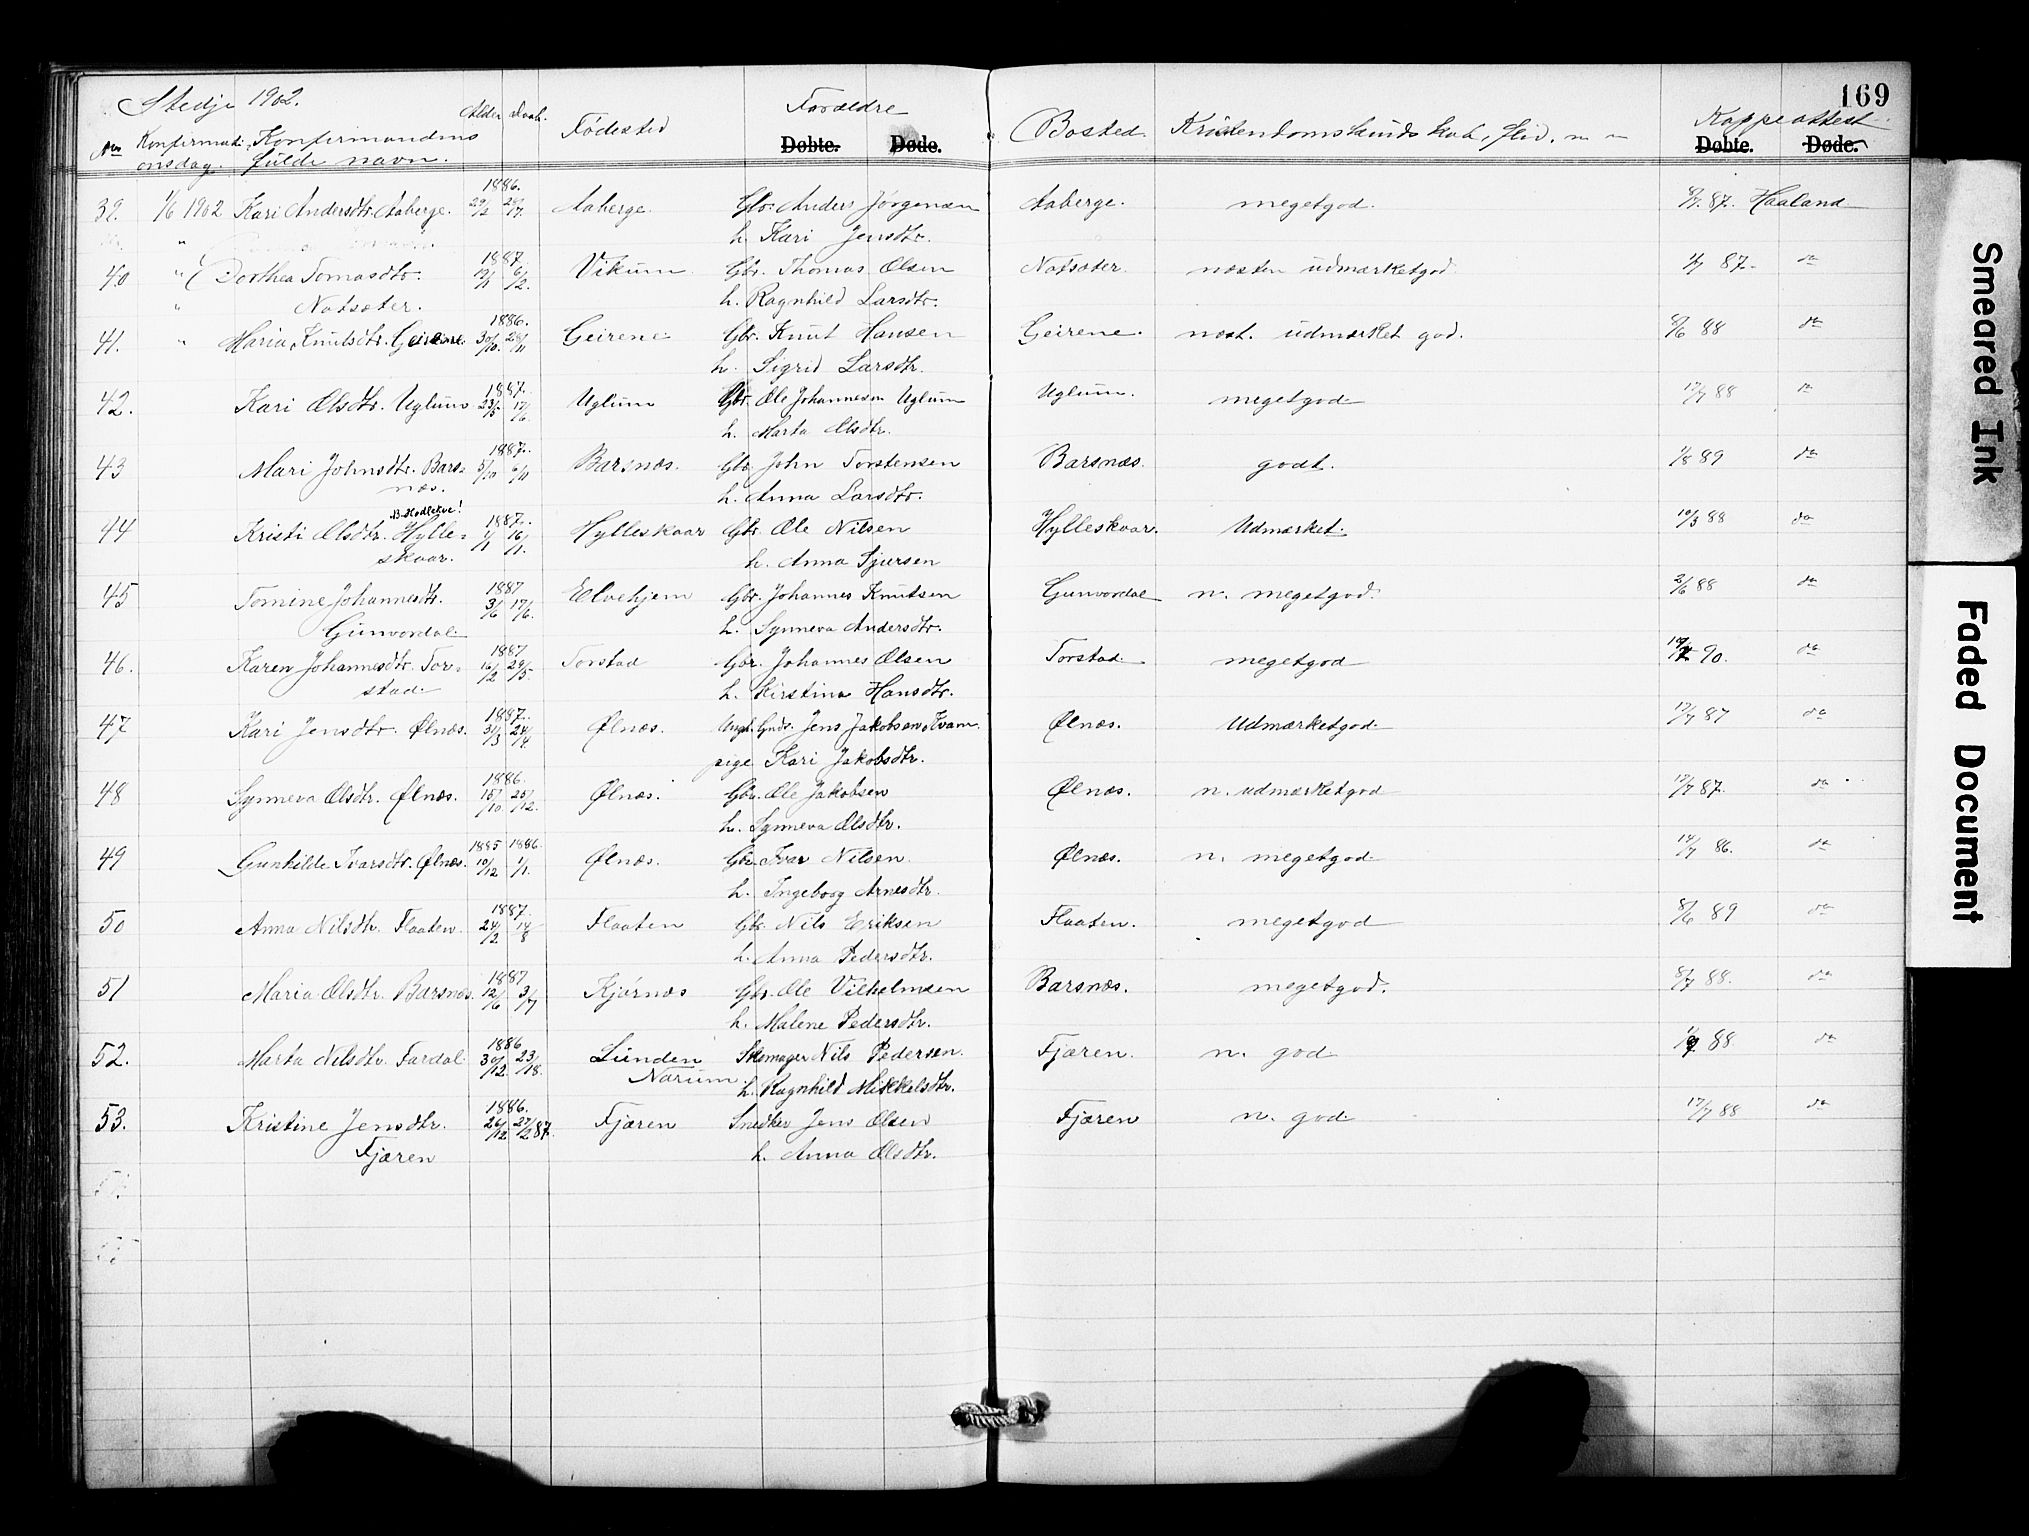 169
Stedje 1902.
No Konfirmationsdag. Konfirmandens fulde navn. Alder Daab. Fødested Forældre Døbte. Døde. Bosted. Kristendomskundskab, flid. m m Koppeattest Døbte. Døde.
1886.
39. 1/6 1902 Kari Andersdtr. Aaberge. 29/2 Aaberge. Gbr. Anders Jørgensen Aaberge. megetgod. 87. Haaland
h. Kari Jensdtr.
1887.
40 " Dorthea Tomasdtr. 12/1 6/2. Vikum Gbr. Thomas Olsen Natsæter. næsten udmærketgod 87. do
" Natsæter. h. Ragnhild Larsdtr.
1886.
41. " Maria Knutsdtr. Geirene. 30/10. 28/11 Geirene Gbr. Knut Hansen Geirene. næst. udmærket god. 8/6 88 do
h. Sigrid Larsdtr.
1887.
42. Kari Olsdtr. Uglum 23/5 17/6 Uglum Gbr. Ole Johannesen Uglum Uglum. megetgod 17/7 88 do
h. Marta Olsdtr.
1887.
43 Mari Johnsdtr. Bars= 5/10 6/11 Barsnæs. Gbr. John Torstensen Barsnæs. godt. 1/8 89 do
næs. h. Anna Larsdtr.
B. Hodlekve!
1887.
44 Kristi Olsdtr. Hylle= 1/1 16/1. Hylleskaar Gbr. Ole Nilsen Hylleskaar. Udmærket. 10/3 88 do
skaar. h. Anna Sjursen
1887
45 Tomine Johannesdtr. 3/6 17/6. Elvehjem Gbr. Johannes Knutsen Gunvordal n. megetgod. 2/6 88 do
Gunvordal. h. Synneva Andersdtr.
1887
46. Karen Johannesdtr. Tor= 16/2 29/5. Torstad Gbr. Johannes Olsen Torstad. megetgod 90. do
stad h. Kirstina Hansdtr.
1887.
47 Kari Jensdtr. Ølnæs. 31/3 24/4 Ølnæs. Ungk. Gnds. Jens Jakobsen Kvam. Ølnæs. Udmærketgod. 17/7 87 do
pige Kari Jakobsdtr.
1886.
48 Synneva Olsdtr. Ølnæs. 15/10 25/12. Ølnæs. Gbr. Ole Jakobsen Ølnæs. n. udmærketgod 17/7 87. do
h. Synneva Olsdtr.
1885 1886.
49 Gunhilde Ivarsdtr. Ølnæs. 10/12 1/1. Ølnæs. Gbr. Ivar Nilsen. Ølnæs. n. megetgod 14/7 86. do
h. Ingeborg Arnesdtr.
1887.
50 Anna Nilsdtr. Flaaten. 24/2 14/8 Flaaten Gbr. Nils Eriksen Flaaten. megetgod 8/6 89 do
h. Anna Pedersdtr.
1887
51 Maria Olsdtr. Barsnæs. 12/6 3/7 Kjørnæs Gbr. Ole Vilhelmsen Barsnæs. megetgod. 8/7 88. do
h. Malene Pedersdtr.
1886
52. Marta Nilsdtr. Fardal 30/12. Lunden Skomager Nils Pedersen. Fjæren. n. god 88 do
Norum. h. Ragnhild Mikkelsdtr.
1886.
53. Kristine Jensdtr. 26/12 27/2 87. Fjæren Snedker Jens Olsen Fjæren n. god 17/7 88 do
Fjæren h. Anna Olsdtr.
Smeared Ink
Faded Document